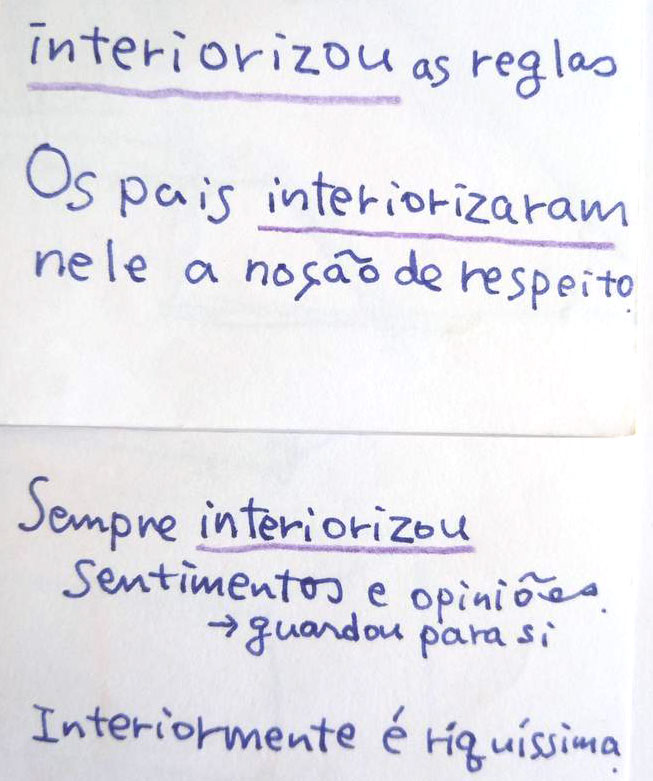 interiorizou as reglas
Os pais interiorizaram
nele a noção de respeito.
Sempre interiorizou
sentimentos e opiniões.
→ guardou para si
Interiormente é riquíssima.